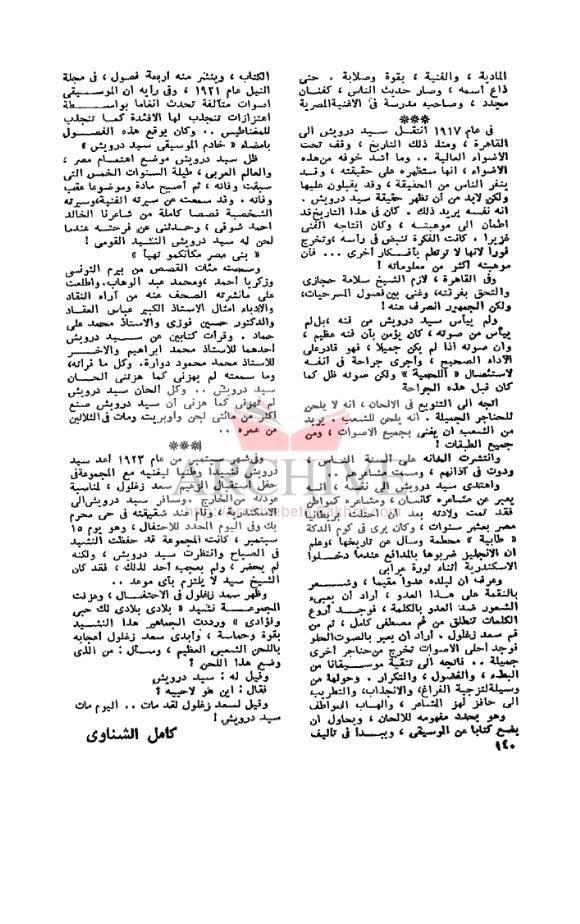 المادية ، والفنية ، بقوة وصلابة . حتى
ذاع اسمه ، وصار حديث الناس ، كفنان
مجدد ، وصاحب مدرسة فى الاغنية المصرية
***
فى عام ١٩١٧ انتقل سيد درويش الى
القاهرة ، ومنذ ذلك التاريخ ، وقف تحت
الاضواء العالية .. وما اشد خوفه من هذه
الاضواء ، انها ستظهره على حقيقته ، وقد
ينفر الناس من الحقيقة ، وقد يقبلون عليها
ولكن لابد من أن تظهر حقيقة سيد درويش .
انه نفسه يريد ذلك . كان فى هذا التاريخ قد
اطمأن الى موهبته ، وكان انتاجه الفنى
غزيرا ، كانت الفكرة تنبض فى رأسه ،وتخرج
فورا لأنها لا ترتطم بأفكار أخرى ... فأن
موهبته أكثر من معلوماته !
وفى القاهرة ، لازم الشيخ سلامة حجازى
والتحق بفرقته، وغنى بين فصول المسرحيات،
ولكن الجمهور انصرف عنه !
ولم ييأس سيد درويش من فنه ،بل لم
ييأس من صوته ، كان يؤمن بأن فنه عظيم ،
وأن صوته اذا لم يكن جميلا ، فهو قادر على
الآداء الصحيح ، وأجرى جراحة فى أنفه
لاستئصال « اللحمية » ولكن صوته ظل كما
كان قبل هذه الجراحة
اتجه الى التنويع فى الالحان ، انه لا يلحن
للحناجر الجميلة . انه يلحن للشعب . يريد
من الشعب أن يغنى بجميع الاصوات ، ومن
جميع الطبقات !
وانتشرت الحانه على السنة الناس ،
ودوت فى آذانهم ، ومست مشاعرهم ..
واهتدى سيد درويش الى نفسه ، انه
يعبر عن مشاعره كانسان ، ومشاعره كمواطن
فقد تمت ولادته بعد أن احتلت بريطانيا
مصر بعشر سنوات ، وكان يرى فى كوم الدكة
« طابية » محطمة وسأل عن تاريخها ،وعلم
أن الانجليز ضربوها بالمدافع عندما دخلوا
الاسكندرية أثناء ثورة عرابى
وعرف أن لبلده عدوا مقيما ، وشعر
بالنقمة على هذا العدو ، أراد أن يعبىء
الشعور ضد العدو بالكلمة ، فوجد أروع
الكلمات تنطلق من فم مصطفى كامل ، ثم من
فم سعد زغلول . أراد أن يعبر بالصوت الحلو
فوجد أحلى الاصوات تخرج من حناجر أخرى
جميلة .. فاتجه الى تنقية موسيقانا من
البطء ، والفضول ، والتكرار . وحولها من
وسيلة لتزجية الفراغ، والانجذاب، والتطريب،
الى حافز لهز المشاعر ، والهاب العواطف
وهو يحدد مفهومه للالحان ، ويحاول أن
يضع كتابا عن الموسيقى ، ويبدأ فى تأليف
١٤٠
الكتاب ، وينشر منه أربعة فصول ، فى مجلة
النيل عام ١٩٢١ ، وفى رأيه أن الموسيقى
أصوات متآلفة تحدث انغاما بواسطة
اهتزازات تنجذب لها الافئدة كما تنجذب
للمغناطيس .. وكان يوقع هذه الفصول
بامضاء « خادم الموسيقى سيد درويش »
ظل سيد درويش موضع اهتمام مصر ،
والعالم العربى ، طيلة السنوات الخمس التى
سبقت وفاته ، ثم أصبح مادة وموضوعا عقب
وفاته . وقد سمعت عن سيرته الفنية،وسيرته
الشخصية قصصا كاملة من شاعرنا الخالد
أحمد شوقى ، وحدثنى عن فرحته عندما
لحن له سيد درويش النشيد القومى !
« بنى مصر مكانكمو تهيأ »
وسمعت مئات القصص من بيرم التونسى
وزكريا أحمد ،ومحمد عبد الوهاب،واطلعت
على مانشرته الصحف عنه من آراء النقاد
والادباء أمثال الاستاذ الكبير عباس العقاد
والدكتور حسين فوزى والاستاذ محمد على
حماد . وقرأت كتابين عن سيد درويش
أحدهما للاستاذ محمد ابراهيم والآخر
للاستاذ محمد محمود دوارة. وكل ما قرأته،
وما سمعته لم يهزنى كما هزتنى الحان
سيد درويش .. وكل الحان سيد درويش
لم تهزنى كما هزنى أن سيد درويش صنع
أكثر من مائتى لحن وأوبريت ومات فى الثلاثين
من عمره ..
***
وفى شهر سبتمبر من عام ١٩٢٣ أعد سيد
درويش نشيدا وطنيا ليغنيه مع المجموعة فى
حفل استقبال الزعيم سعد زغلول ، لمناسبة
عودته من الخارج . وسافر سيد درويش الى
الاسكندرية ، ونام عند شقيقته فى حى محرم
بك وفى اليوم المحدد للاحتفال ، وهو يوم ١٥
سبتمبر ، كانت المجموعة قد حفظت النشيد
فى الصباح وانتظرت سيد درويش ، ولكنه
لم يحضر ، ولم يعجب أحد لذلك ، فقد كان
الشيخ سيد لا يلتزم بأى موعد ..
وظهر سعد زغلول فى الاحتفال ، وعزفت
المجموعة نشيد « بلادى بلادى لك حبى
وفؤادى » ورددت الجماهير هذا النشيد
بقوة وحماسة ، وأبدى سعد زغلول اعجابه
باللحن الشعبى العظيم ، وسأل : من الذى
وضع هذا اللحن ؟
وقيل له : سيد درويش
فقال : أين هو لأحييه ؟
وقيل لسعد زغلول لقد مات .. اليوم مات
سيد درويش !
كامل الشناوى
ARCHIVE